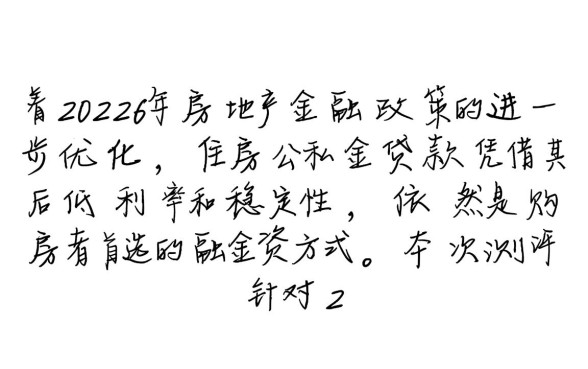 着20226年房地产金融政策的进一
步优化，住房公私金贷款凭借其
后低利率和稳定性，依然是购
房者首选的融金资方式。本次测评
针对2